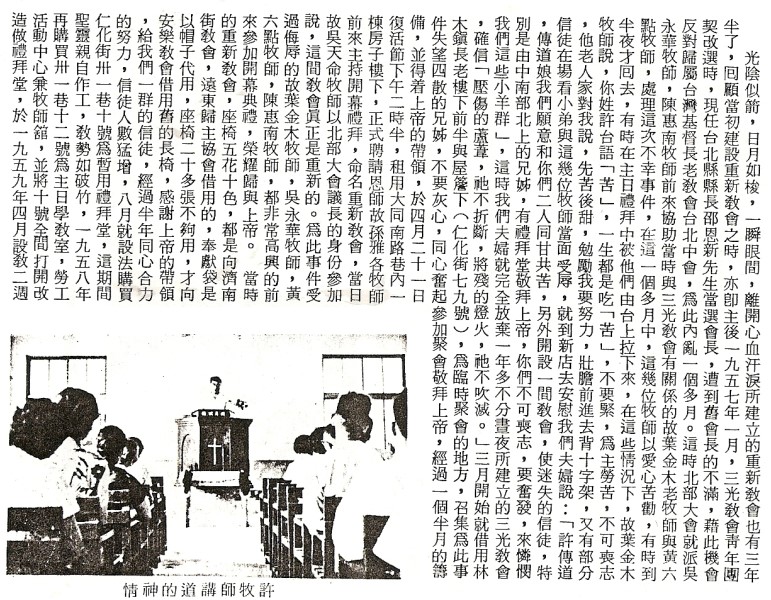 光陰似箭，日月如梭，一瞬眼間，離開心血汗淚所建立的重新敎會也有三年
半了，回顧當初建設重新敎會之時，亦卽主後一九五七年一月，三光敎會靑年團
契改選時，現任台北縣縣長邵恩新先生當選會長，遭到舊會長的不滿，藉此機會
反對歸屬台灣基督長老敎會台北中會，爲此內亂一個多月。這時北部大會就派吳
永華牧師，陳惠南牧師前來協助當時與三光敎會有關係的故葉金木老牧師與黃六
點牧師，處理這次不幸事件，在這一個多月中，這幾位牧師以愛心苦勸，有時到
半夜才回去，有時在主日禮拜中被他們由台上拉下來，在這些情況下，故葉金木
牧師說，你姓許台語「苦」，一生都是吃「苦」，不要緊，爲主勞苦，不可喪志
，他老人家對我說，先苦後甜，勉勵我要努力，壯膽前進去背十字架，又有部分
信徒在場看小弟與這幾位牧師當面受辱，就到新店去安慰我們夫婦說：「許傳道
，傳道娘我們願意和你們二人同甘共苦，另外開設一間敎會，使迷失的信徒，特
別是由中南部北上的兄姊，有禮拜堂敬拜上帝，你們不可喪志，要奮發，來憐憫
我們這些小羊群」，這時我們夫婦就完全放棄一年多不分晝夜所建立的三光敎會
，確信「壓傷的蘆葦，祂不折斷，將殘的燈火，祂不吹滅。」三月開始就借用林
木鎭長老樓下前半與屋簷下（仁化街七九號），爲臨時聚會的地方，召集爲此事
件失望四散的兄姊，不要灰心，同心奮起參加聚會敬拜上帝，經過一個半月的籌
備，並得着上帝的帶領，於四月二十一日
復活節下午二時半，租用大同南路巷內一
棟房子樓下，正式聘請恩師故孫雅各牧師
前來主持開幕禮拜，命名重新敎會，當日
故吳天命牧師以北部大會議長的身份參加
說，這間敎會眞正是重新的。爲此事件受
過侮辱的故葉金木牧師，吳永華牧師，黃
六點牧師，陳惠南牧師，都非常高興的前
來參加開幕典禮，榮耀歸與上帝。　當時
的重新敎會，座椅五花十色，都是向濟南
街敎會，遠東歸主協會借用的，奉獻袋是
以帽子代用，座椅二十多張不夠用，才向
安樂敎會借用舊的長椅，感謝上帝的帶領
，給我們一群的信徒，經過半年同心合力
的努力，信徒人數猛增，八月就設法購買
仁化街卅一巷十號爲暫用禮拜堂，這期間
聖靈親自作工，敎勢如破竹，一九五八年
再購買卅一巷十二號爲主日學敎室，勞工
活動中心兼牧師舘，並將十號全間打開改
造做禮拜堂，於一九五九年四月設敎二週
許牧師講道的神情